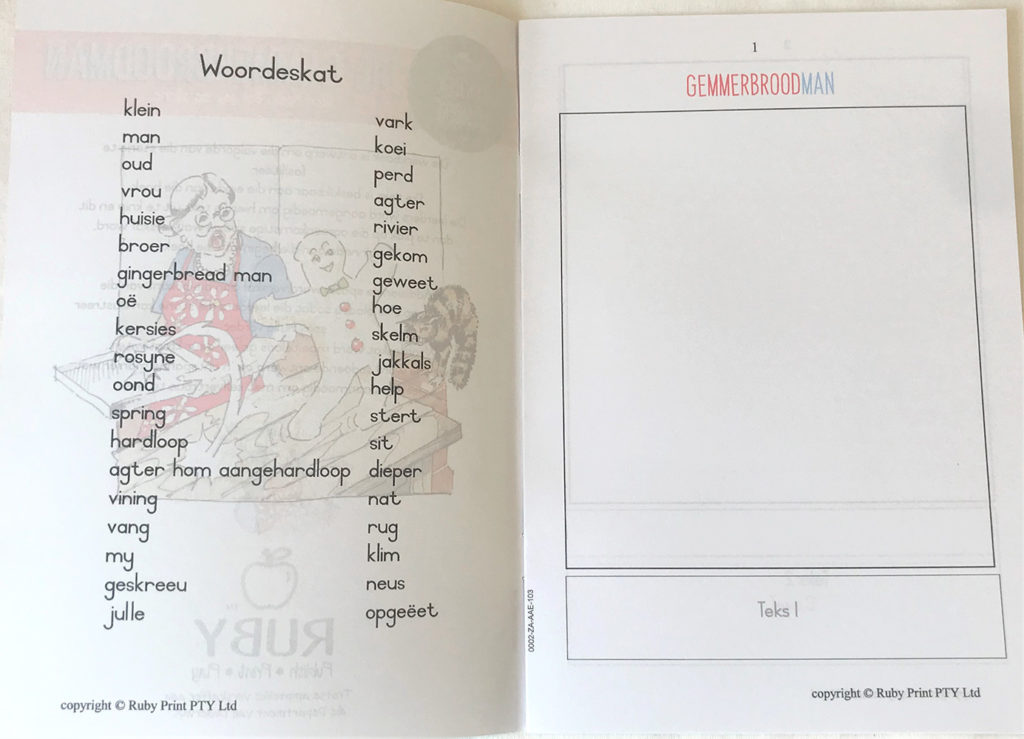 Woordeskat
klein
man
oud
vrou
huisie
broer
gingerbread man
oë
kersies
rosyne
oond
spring
hardloop
agter hom aangehardloop
vining
vang
my
geskreeu
julle
vark
koei
perd
agter
rivier
gekom
geweet
hoe
skelm
jakkals
help
stert
sit
dieper
nat
rug
klim
neus
opgeëet
copyright © Ruby Print PTY Ltd
RUBY
0002-ZA-AAE-103
1
GEMMERBROODMAN
Teks 1
copyright © Ruby Print PTY Ltd